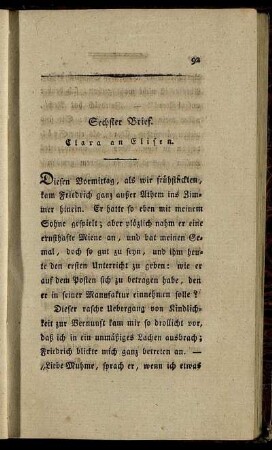 92
Sechster Brief.
Clara an Elisen.
Diesen Vormittag, als wir frühstückten,
kam Friedrich ganz außer Athem ins Zim-
mer hinein. Er hatte so eben mit meinem
Sohne gespielt; aber plözlich nahm er eine
ernsthafte Miene an, und bat meinen Ge-
mal, doch so gut zu seyn, und ihm heu-
te den ersten Unterricht zu geben: wie er
auf dem Posten sich zu betragen habe, den
er in seiner Manufaktur einnehmen solle?
Dieser rasche Uebergang von Kindlich-
keit zur Vernunft kam mir so drollicht vor,
daß ich in ein unmäßiges Lachen ausbrach;
Friedrich blikte mich ganz betreten an. —
„Liebe Muhme, sprach er, wenn ich etwas